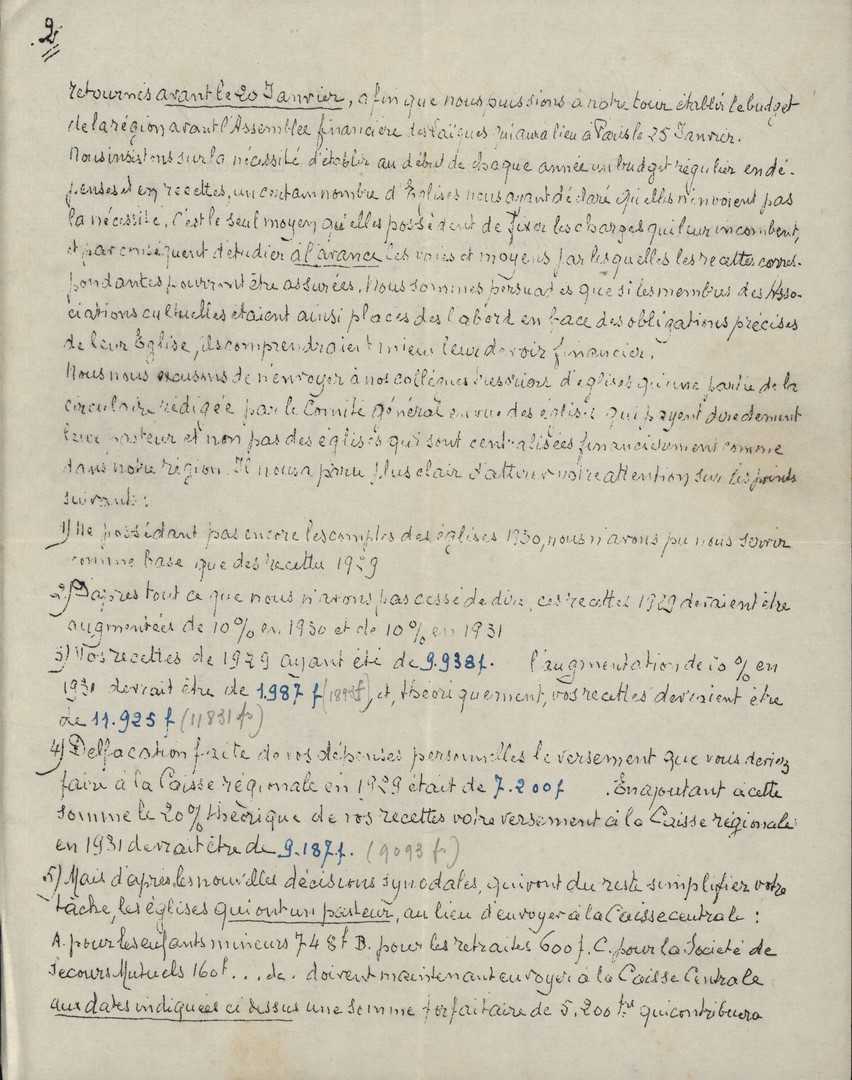 2
retournés avant le 20 Janvier, afin que nous puissions à notre tour établir le budget
de la région avant l'Assemblée financière des Laïques qui aura lieu à Paris le 25 Janvier.
Nous insistons sur la nécessité d'établir au début de chaque année un budget régulier en dé-
penses et en recettes, un certain nombre d'Eglises nous ayant déclaré qu'elles n'envoient pas
la nécessité. C'est le seul moyen qu'elles possèdent de fixer les charges qui leur incombent,
et par conséquent d'étudier à l'avance les voies et moyens par lesquelles les recettes corres-
pondantes pourront être assurées. Nous sommes persuadés que si les membres des Asso-
ciations cultuelles étaient ainsi placés dès l'abord en face des obligations précises
de leur Eglise, ils comprendraient mieux leur devoir financier.
Nous nous excusons de n'envoyer à nos collègues trésoriers d'églises qu'une partie de la
circulaire rédigée par le Comité général en vue des églises qui payent directement
leur pasteur et non pas des églises qui sont centralisées financièrement comme
dans notre région. Il nous a paru plus clair d'attirer votre attention sur les points
suivants :
1) Ne possédant pas encore les comptes des églises 1930, nous n'avons pu nous servir
comme base que des recettes 1929
2) D'après tout ce que nous n'avons pas cessé de dire, ces recettes 1929 devraient être
augmentées de 10% en 1930 et de 10% en 1931
3) Vos recettes de 1929 ayant été de 9.938 f. l'augmentation de 20 % en
1931 devrait être de 1.987 f (1893 f), et, théoriquement, vos recettes devraient être
de 11.925 f (11831 fr)
4) Défalcation faite de vos dépenses personnelles le versement que vous deviez
faire à la Caisse régionale en 1929 était de 7.200 f . En ajoutant à cette
somme le 20% théorique de vos recettes votre versement à la Caisse régionale
en 1931 devrait être de 9.187 f. (9093 fr)
5) Mais d'après les nouvelles décisions synodales, qui vont du reste simplifier votre
tâche, les églises qui ont un pasteur, au lieu d'envoyer à la Caisse centrale :
A. pour les enfants mineurs 748 f B. pour les retraites 600 f. C. pour la Société de
Secours Mutuels 160 f. . . de. doivent maintenant envoyer à la Caisse Centrale
aux dates indiquées ci dessus une somme forfaitaire de 5.200 frs qui contribuera